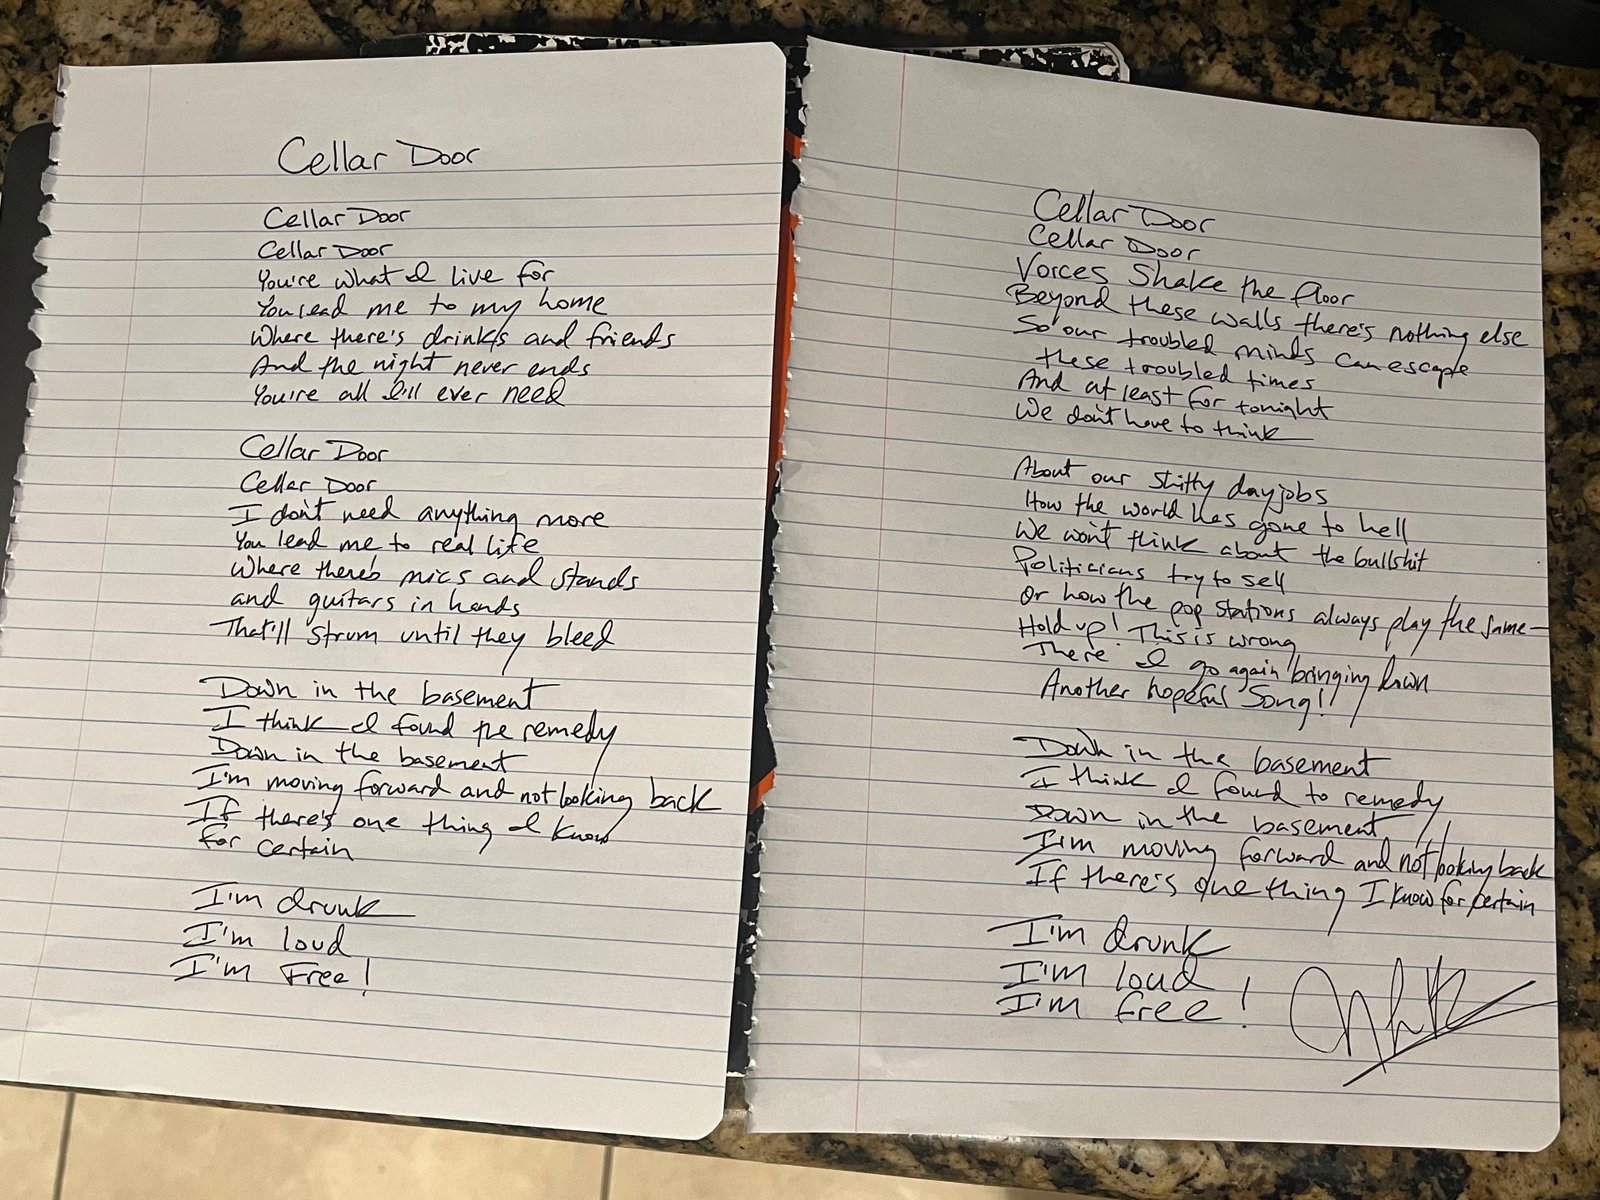 Cellar Door
Cellar Door
Cellar Door
You're what I live for
You lead me to my home
Where there's drinks and friends
And the night never ends
You're all I'll ever need
Cellar Door
Cellar Door
I don't need anything more
You lead me to real life
Where there's mics and stands
and guitars in hands
That'll strum until they bleed
Down in the basement
I think I found the remedy
Down in the basement
I'm moving forward and not looking back
If there's one thing I know
for certain
I'm drunk
I'm loud
I'm Free!
Cellar Door
Cellar Door
Voices Shake the floor
Beyond these walls there's nothing else
So our troubled minds can escape
these troubled times
And at least for tonight
We don't have to think
About our shitty day jobs
How the world has gone to hell
We won't think about the bullshit
Politicians try to sell
Or how the pop stations always play the same—
Hold up! This is wrong
There I go again bringing down
Another hopeful Song!!
Down in the basement
I think I found to remedy
Down in the basement
I'm moving forward and not looking back
If there's one thing I know for certain
I'm drunk
I'm loud
I'm free!